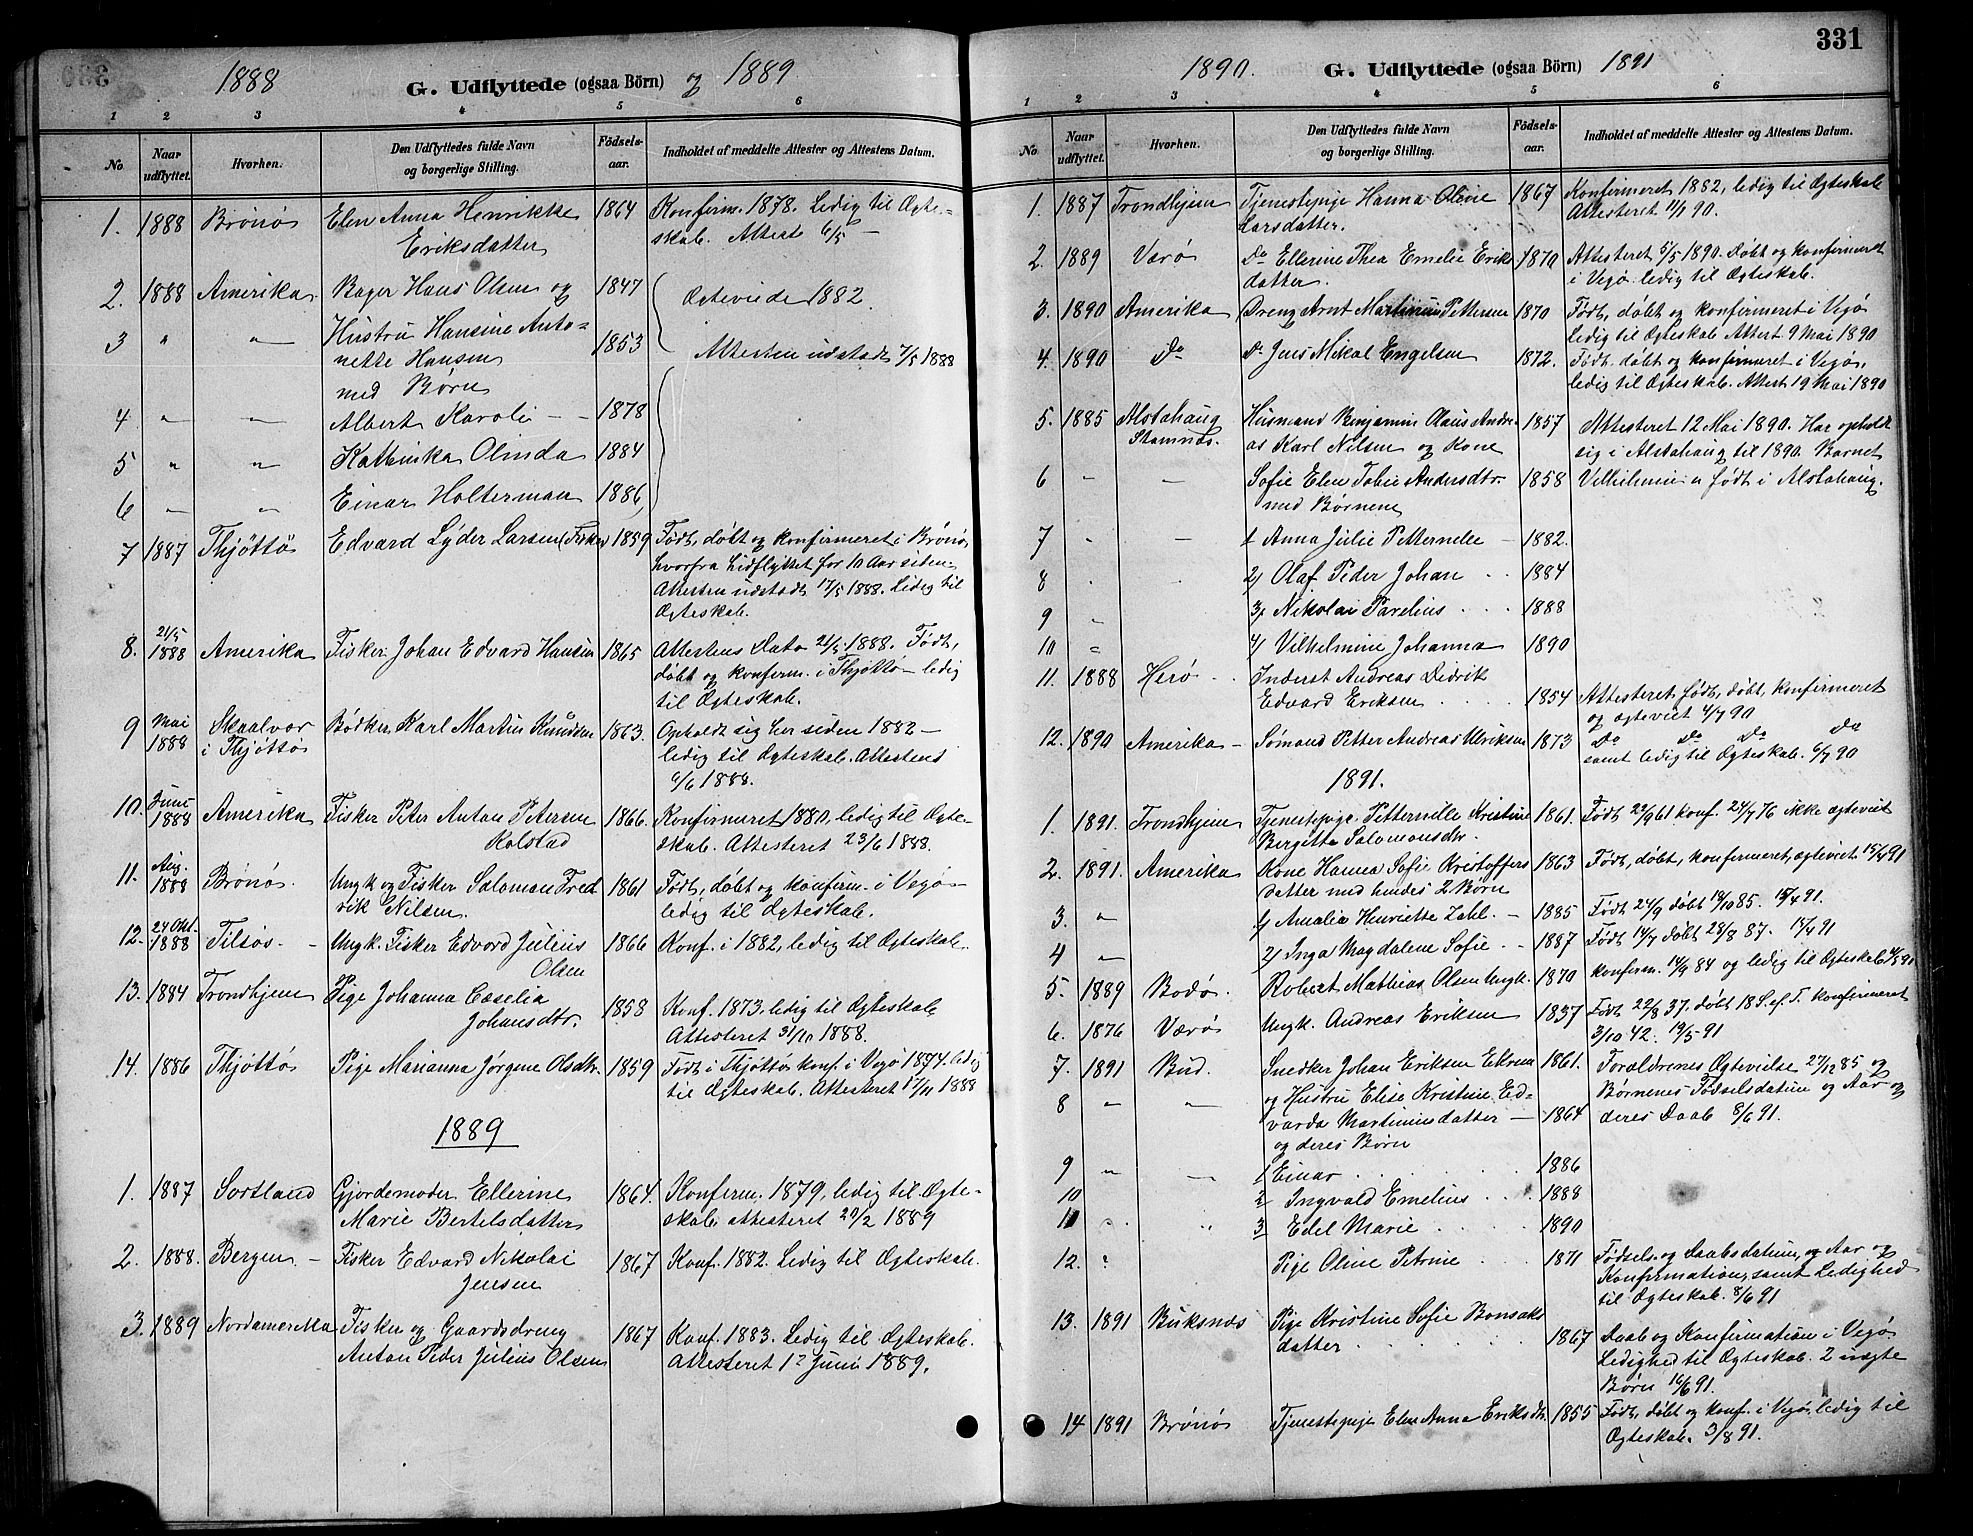 1888 G. Udflyttede (ogsaa Börn) og 1889
1 2 3 4 5 6
No. Naar udflyttet. Hvorhen. Den Udflyttedes fulde Navn og borgerlige Stilling. Födsels-aar. Indholdet af meddelte Attester og Attestens Datum.
1. 1888 Brønøs Elen Anna Henrikke 1864 Konfirm. 1878. Ledig til Ægte-
Eriksdatter skab. Attest 6/5 –
2. 1888 Amerika. Bager Hans Olsen og 1847 Ægteviede 1882.
3 " " Hustru Hansine Anto-
nette Hansen 1853 Attesten udstedt 7/5 1888
med Børn
4 " " Albert Karoli – – 1878
5 " " Kathinka Olinda 1884
6 " " Einar Holterman 1886,
7 1887 Thjøttø Edvard Lyder Larsen (Fisker) 1859 Født, døbt og konfirmeret i Brønø,
hvorfra Udflyttet for 10 Aar siden.
Attesten udstedt 17/5 1888. Ledig til
Ægteskab.
8. 21/5 1888 Amerika Fisker Johan Edvard Hansen 1865 Attestens Dato 21/5 1888. Født,
døbt og konfirm. i Thjøttø – ledig
til Ægteskab.
9 Mai 1888 Skaalvær Bødker Karl Martin Knudsen 1863. Opholdt sig her siden 1882 –
i Thjøttø ledig til Ægteskab. Attestens
6/6 1888.
10. Juni 1888 Amerika Fisker Peter Antan Petersen 1866. Konfirmeret 1880, ledig til Ægte-
Rolstad skab. Attesteret 23/6 1888.
11. Aug. 1888 Brønøs. Ungk og Fisker Salomon Fred 1861 Født, døbt og konfirm. i Vegø –
rik Nilsen. ledig til Ægteskab.
12. 24 Okt. 1888 Tilsøs. – Ungk. Fisker Edvard Julius 1866 Konf. i 1882, ledig til Ægteskab.
Olsen
13. 1884 Trondhjem Pige Johanna Cæselia 1858 Konf. 1873. ledig til Ægteskab
Johansdtr. Attesteret 31/10 1888.
14. 1886 Thjøttø Pige Marianna Jørgine Olsdtr. 1859 Født i Thjøttø, konf. i Vegø 1874. ledig
til Ægteskab. Attesteret 17/11 1888
1889
1. 1887 Sortland Gjordemoder Ellerine 1864. Konferm. 1879, ledig til Ægte-
Marie Bertelsdatter skab, attesteret 20/2 1889
2. 1888. Bergen. – Fisker Edvard Nikolai 1867 Konf. 1882. Ledig til Ægteskab.
Jensen
3. 1889 Nordamerika Fisker og Gaardsdreng 1867 Konf. 1883. Ledig til Ægteskab.
Antan Peder Julius Olsen Attesteret 12 Juni 1889.
331
1890. G. Udflyttede (ogsaa Börn) 1891
1 2 3 4 5 6
No. Naar udflyttet. Hvorhen. Den Udflyttedes fulde Navn og borgerlige Stilling. Födsels-aar. Indholdet af meddelte Attester og Attestens Datum.
1. 1887 Trondhjem Tjenestepige Hanna Olevie 1867 Konfirmeret 1882, ledig til Ægteskab
Larsdatter. Attesteret 11/1 90.
2. 1889 Værø Do Ellerine Thea Emelie Eriks 1870 Attesteret 5/5 1890. Døbt og konfirmeret
datter. i Vegø. ledig til Ægteskab.
3. 1890 Amerika Dreng Arnt Martinius Pettersen 1870 Født, døbt og konfirmeret i Vegø
ledig til Ægteskab Attest 9 Mai 1890
4. 1890 Do Do Jens Mikal Engelsen 1872. Født, døbt og konfirmeret i Vegø.
ledig til Ægteskab. Attest 19 Mai 1890
5. 1885 Alstahaug Husmand Benjamin Olaus Andre- 1857 Attesteret 12 Mai 1890. Har opholdt
Stamnes. as Karl Nilsen og Kone sig i Alstahaug til 1890. Barnet
6 – – Sofie Elen Tobie Andersdtr. 1858 Vilhelmine er født i Alstahaug.
med Børnene
7 " – 1/ Anna Julie Petternelee – 1882.
8 2/ Olaf Peder Johan . . 1884
9 " 3/ Nikolai Parelius . . . 1888
10 " 4/ Vilhelmine Johanna 1890
11. 1888 Herø . . Inderst Andreas Didrik
Edvard Eriksen . . . . 1854 Attesteret, født, døbt, konfirmeret
og ægteviet 4/7 90
12. 1890 Amerika – Sømand Petter Andreas Ulriksen 1873 Do Do Do Do
samt ledig til Ægteskab. 6/7 90
1891.
1. 1891. Trondhjem Tjenestepige Petternille Kristine 1861. Født 22/9 61 konf. 24/7 76 ikke ægteviet
Bergitte Salomonsdtr.
2. 1891. Amerika Kone Hanna Sofie Kristoffers 1863 Født, døbt, konfirmeret, ægteviet 15/4 91
datter med hendes 2 Børn
3. " 1/ Amalia Henriette Zahl. – 1885 Født 24/9 døbt 18/10 85. 15/4 91.
4 " 2/ Inga Magdalene Sofie . . 1887 Født 14/7 døbt 28/8 87. 15/4 91
5. 1889 Bodø. Robert Mathias Olsen Ungk. 1870 Konferm. 14/9 84 og ledig til Ægteskab
6. 1876 Værø Ungk. Andreas Eriksen 1837 Født 22/8 37. døbt 18 S. ef. T. konfirmeret
3/10 42. 19/5 – 91
7. 1891 Bud. Snedker Johan Eriksen Ekrem 1861. Forældrenes Ægtevielse 27/12 85 og
8 " " og Hustru Elise Kristine Ed- Børnenes Fødselsdatum og Aar og
varda Martinusdatter – 1864 deres Daab 8/6 91.
og deres Børn
9 " – 1 Einar . . . . . 1886
10 2 Ingvald Emelius . . . 1888
11 " " 3 Edel Marie . . . . 1890
12. " Pige Oline Petrine . . . 1871 Fødsels- og Daabsdatum, og Aar og
Konfirmation, samt Ledighed
til Ægteskab. 8/6 91
13. 1891 Buksnes Pige Kristine Sofie Bonsaks
datter . . . . . . 1867 Daab og Konfirmation i Vegø
Ledighed til Ægteskab. 2 uægte
Børn 16/6 91.
14 1891 Brønø Tjenestepige Elen Anna Eriksdtr. 1855 Født, døbt og konf. i Vegø, ledig til
Ægteskab. 3/8 91.